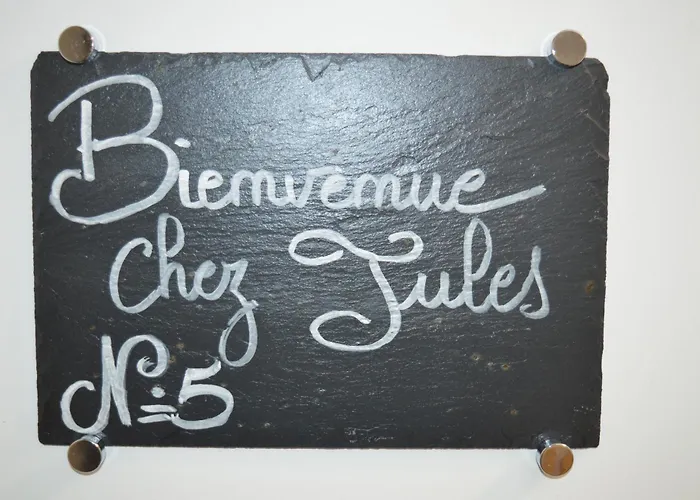 Bienvenue
chez Jules
N°5